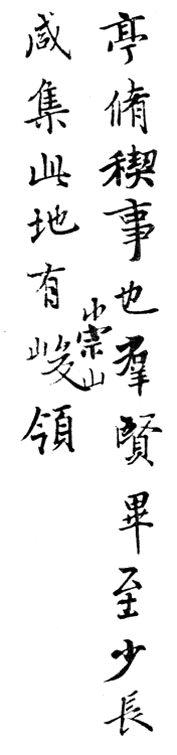 亭脩稧事也羣賢畢至少長
咸集此地有崇山峻領